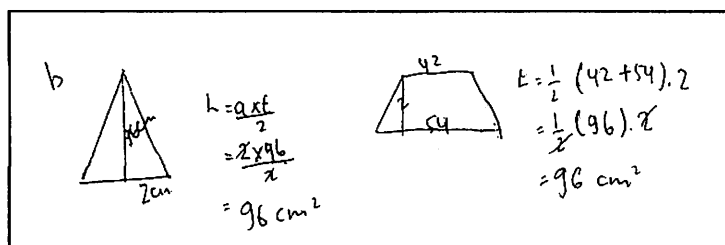 b
2cm
L = axt/2
= 2x96/2
= 96 cm²
42
2
54
L = 1/2 (42+54).2
= 1/2 (96).2
= 96 cm²